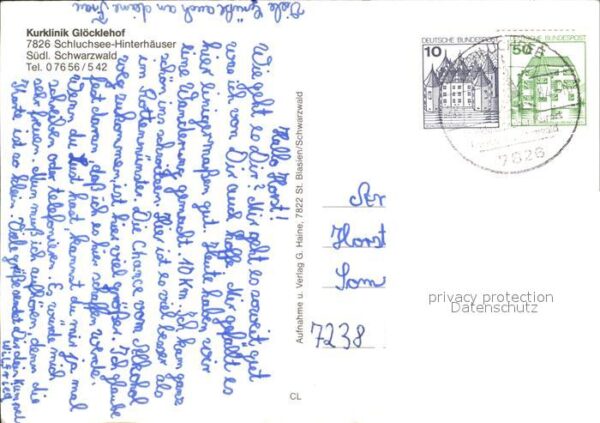 Kurklinik Glöcklehof
7826 Schluchsee-Hinterhäuser
Südl. Schwarzwald
Tel. 0 76 56 / 5 42
Hallo Horst!
Wie geht es Dir? Mir geht es soweit gut
was ich von Dir auch hoffe. Mir gefällt es
hier einigermaßen gut. Heute haben wir
eine Wanderung gemacht. 10 Km. Ich kam ganz
schön ins schwitzen. Hier ist es viel besser als
im Rottenmünster. Die Chance vom Alkohol
weg zukommen, ist hier viel größer. Ich glaube
fest daran, daß ich es hier schaffen werde.
Wenn du Lust hast, kannst du mir ja mal
schreiben oder telefonieren. Es würde mich
sehr freuen. Nun muß ich aufhören denn die
Karte ist so klein. Viele grüße sendet Dir dein Kumpel
Wilfried
Viele Grüße auch an deine Frau
Aufnahme u. Verlag G. Haine, 7822 St. Blasien/Schwarzwald
CL
DEUTSCHE BUNDESPOST
10
DEUTSCHE BUNDESPOST
50
SCHLUCHSEE
7826
Horst
7238
privacy protection
Datenschutz